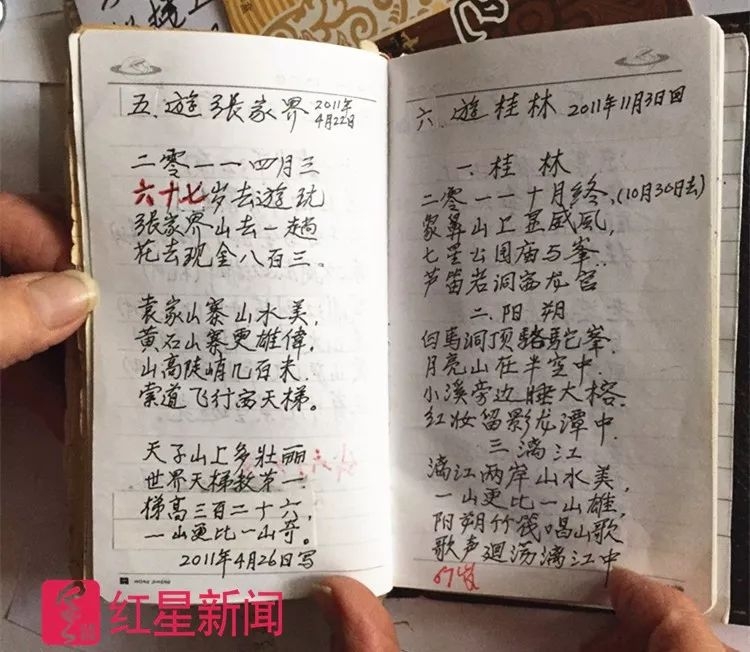 五、遊張家界 2011年4月22日
二零一一四月三
六十七岁去遊玩
張家界山去一趟
花去现金八百三。
袁家山寨山水美，
黄石山寨更雄偉，
山高陡峭几百米，
索道飞行
天子山上多壮丽
世界天梯数第一，
梯高三百二十六，
一山更比一山奇。
2011年4月26日写
六、遊桂林 2011年11月3日回
一、桂林
二零一一十月终，(10月30日去)
象鼻山上显威風，
七星公园庙与峯，
芦笛岩洞
二、阳朔
白馬洞顶駱駝峯，
月亮山在半空中，
小溪旁边睡大榕，
红妆留影龙潭中。
三、漓江
漓江两岸山水美，
一山更比一山雄，
阳朔竹筏唱山歌
歌声廻荡漓江中
67岁
红星新闻